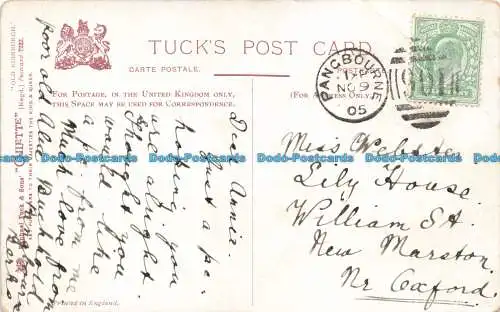 TUCK'S POST CARD
CARTE POSTALE.
FOR POSTAGE, IN THE UNITED KINGDOM ONLY,
THIS SPACE MAY BE USED FOR CORRESPONDENCE.
(FOR ADDRESS ONLY.)
PANGBOURNE
NO 9
05
Miss Webster
Lily House.
William St.
New Marston.
Nr Oxford.
Dear Annie.
Just a p.c.
hoping you
are alright
thought you
would like
a p.c. from me
Much love from
poor old Alec. Such old
"OILETTE"
PRINTED IN ENGLAND.
Dodo-Postcards
Dodo-Postcards
Dodo-Postcards
Dodo-Postcards
Dodo-Postcards
Dodo-Postcards
Dodo-Postcards
Dodo-Postcards